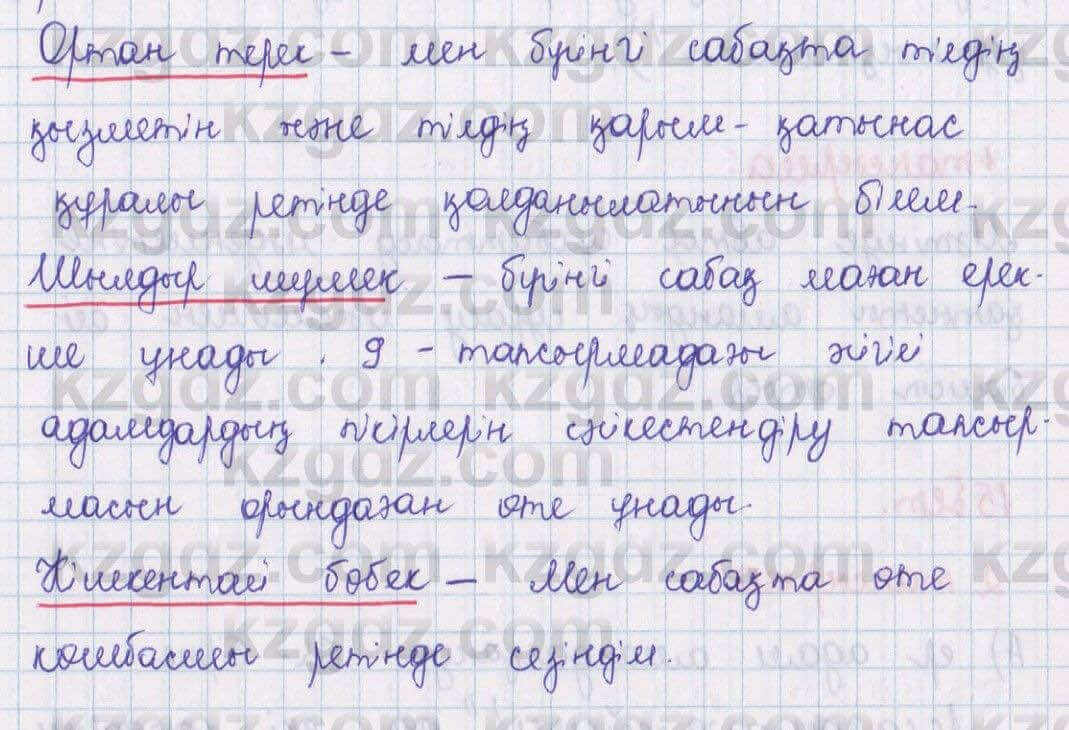 Ортан терек – мен бүгінгі сабақта тілдің
қызметін және тілдің қарым-қатынас
құралы ретінде қолданылатынын білем.
Шылдыр шүмек – бүгінгі сабақ маған ерек-
ше ұнады. 9-тапсырмадағы жігі
адамдардың пікірлерін сәйкестендіру тапсыр-
масын орындаған өте ұнады.
Кішкентай бөбек – Мен сабақта өте
көшбасшы ретінде сезіндім.
kzgdz.com